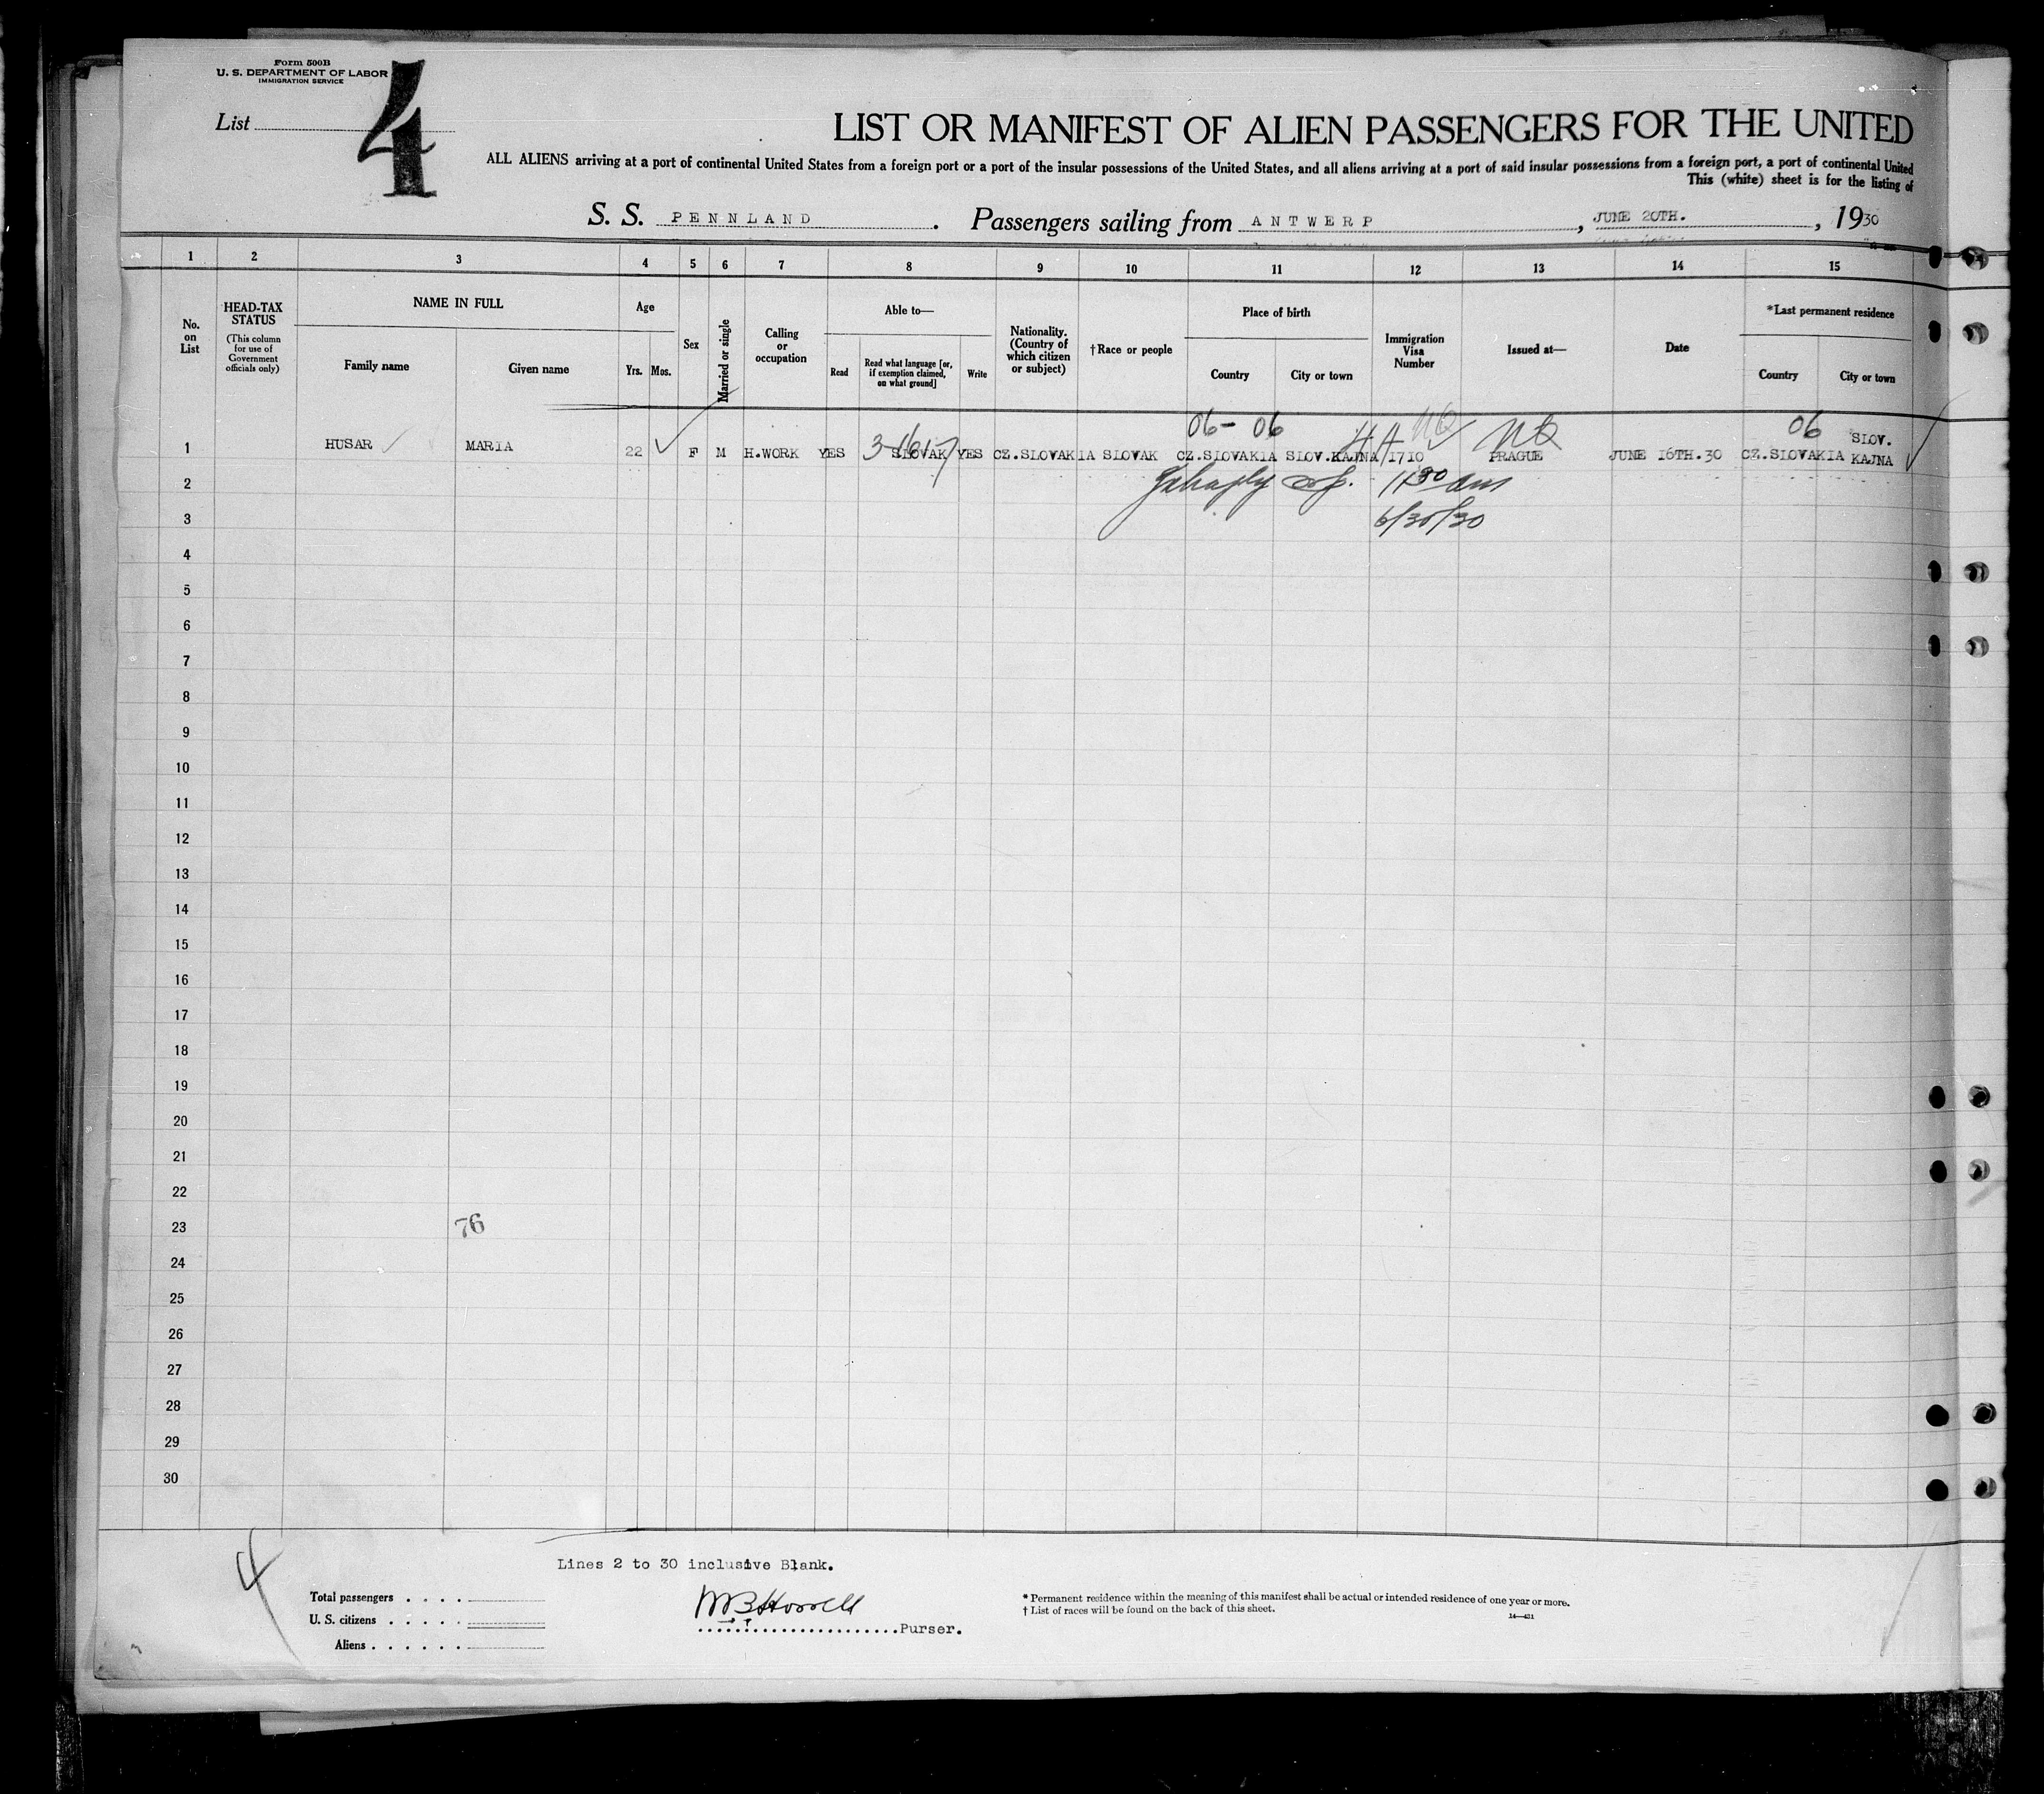 Form 500B
U. S. DEPARTMENT OF LABOR
IMMIGRATION SERVICE
List 4
LIST OR MANIFEST OF ALIEN PASSENGERS FOR THE UNITED
ALL ALIENS arriving at a port of continental United States from a foreign port or a port of the insular possessions of the United States, and all aliens arriving at a port of said insular possessions from a foreign port, a port of continental United
This (white) sheet is for the listing of
S. S. PENNLAND. Passengers sailing from ANTWERP, JUNE 20TH., 1930
1 2 3 4 5 6 7 8 9 10 11 12 13 14 15
No. on List
HEAD-TAX STATUS
(This column for use of Government officials only)
NAME IN FULL
Family name
Given name
Age
Yrs. Mos.
Sex
Married or single
Calling or occupation
Able to—
Read
Read what language [or, if exemption claimed, on what ground]
Write
Nationality. (Country of which citizen or subject)
†Race or people
Place of birth
Country
City or town
Immigration Visa Number
Issued at—
Date
*Last permanent residence
Country
City or town
06- 06 NQ NQ 06
1 HUSAR MARIA 22 F M H.WORK YES SLOVAK YES CZ.SLOVAKIA SLOVAK CZ.SLOVAKIA SLOV.KAJNA 1710 PRAGUE JUNE 16TH.30 CZ.SLOVAKIA SLOV. KAJNA
2 11 30 am
3 6/30/30
4
5
6
7
8
9
10
11
12
13
14
15
16
17
18
19
20
21
22
23 76
24
25
26
27
28
29
30
4
Lines 2 to 30 inclusive Blank.
Total passengers . . . .
U. S. citizens . . . . .
Aliens . . . . . .
Purser.
* Permanent residence within the meaning of this manifest shall be actual or intended residence of one year or more.
† List of races will be found on the back of this sheet.
14—431